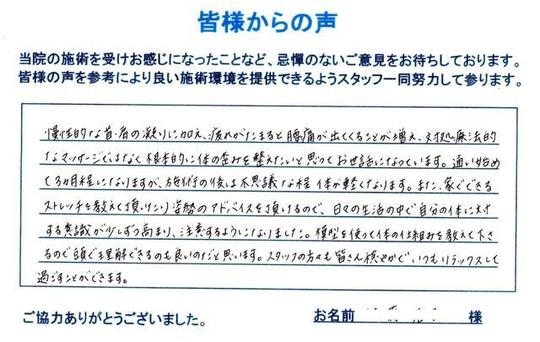 皆様からの声
当院の施術を受けお感じになったことなど、忌憚のないご意見をお待ちしております。
皆様の声を参考により良い施術環境を提供できるようスタッフ一同努力して参ります。
慢性的な首・肩の凝りに加え、疲れがたまると腰痛が出てくることが増え、対処療法的
なマッサージではなく根本的に体の歪みを整えたいと思ってお世話になっています。通い始め
て3ヵ月程になりますが、施術の後は不思議な程 体が軽くなります。また、家でできる
ストレッチを教えて頂いたり 姿勢のアドバイスを頂けるので、日々の生活の中で自分の体に対す
る意識が少しずつ高まり、注意するようになりました。模型を使って体の仕組みを教えて下さ
るので頭で理解できるのも良いのだと思います。スタッフの方々も皆さん穏やかで、いつもリラックスして
過ごすことができます。
ご協力ありがとうございました。
お名前 様